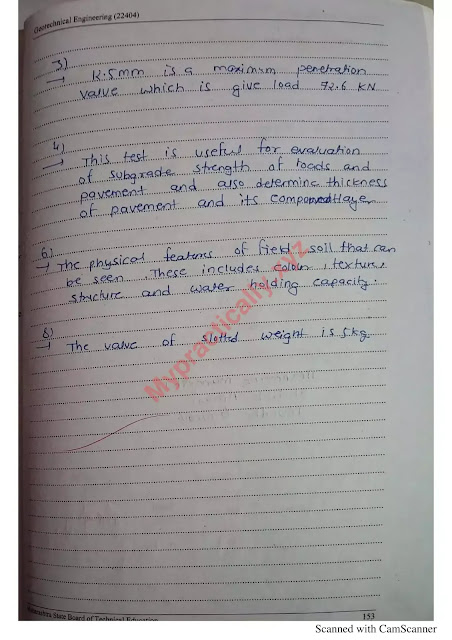 Geotechnical Engineering (22404)
3)
→ 12.5mm is a maximum penetration
value which is give load 72.6 KN
4)
→ This test is useful for evaluation
of subgrade strength of roads and
pavement and also determine thickness
of pavement and its layer
6)
→ The physical features of field soil that can
be seen These includes colour, texture,
structure and water holding capacity.
8)
→ The value of slotted weight is 5kg.
Mypractically.xyz
State Board of Technical Education
153
Scanned with CamScanner